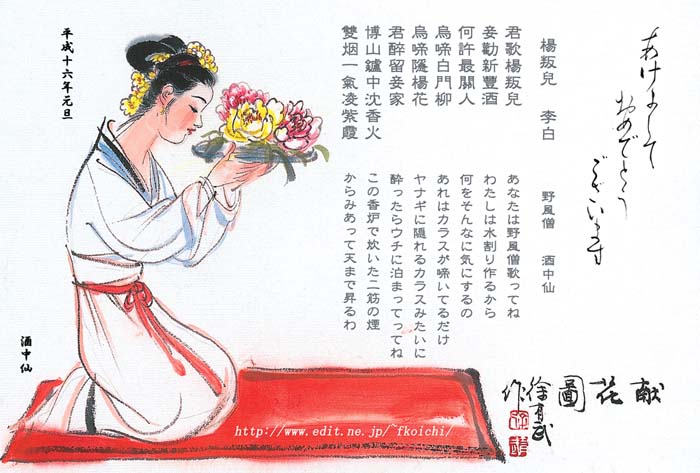 あけまして
おめでとう
ございます
楊叛兒　李白
君歌楊叛兒
妾勸新豐酒
何許最關人
烏啼白門柳
烏啼隱楊花
君醉留妾家
博山鑪中沈香火
雙烟一氣凌紫霞
野風僧　酒中仙
あなたは野風僧歌ってね
わたしは水割り作るから
何をそんなに気にするの
あれはカラスが啼いてるだけ
ヤナギに隠れるカラスみたいに
酔ったらウチに泊まってってね
この香炉で炊いた二筋の煙
からみあって天まで昇るわ
平成十六年元旦
酒中仙
献花圖
徐亨武
作
http://www.edit.ne.jp/~fkoichi/